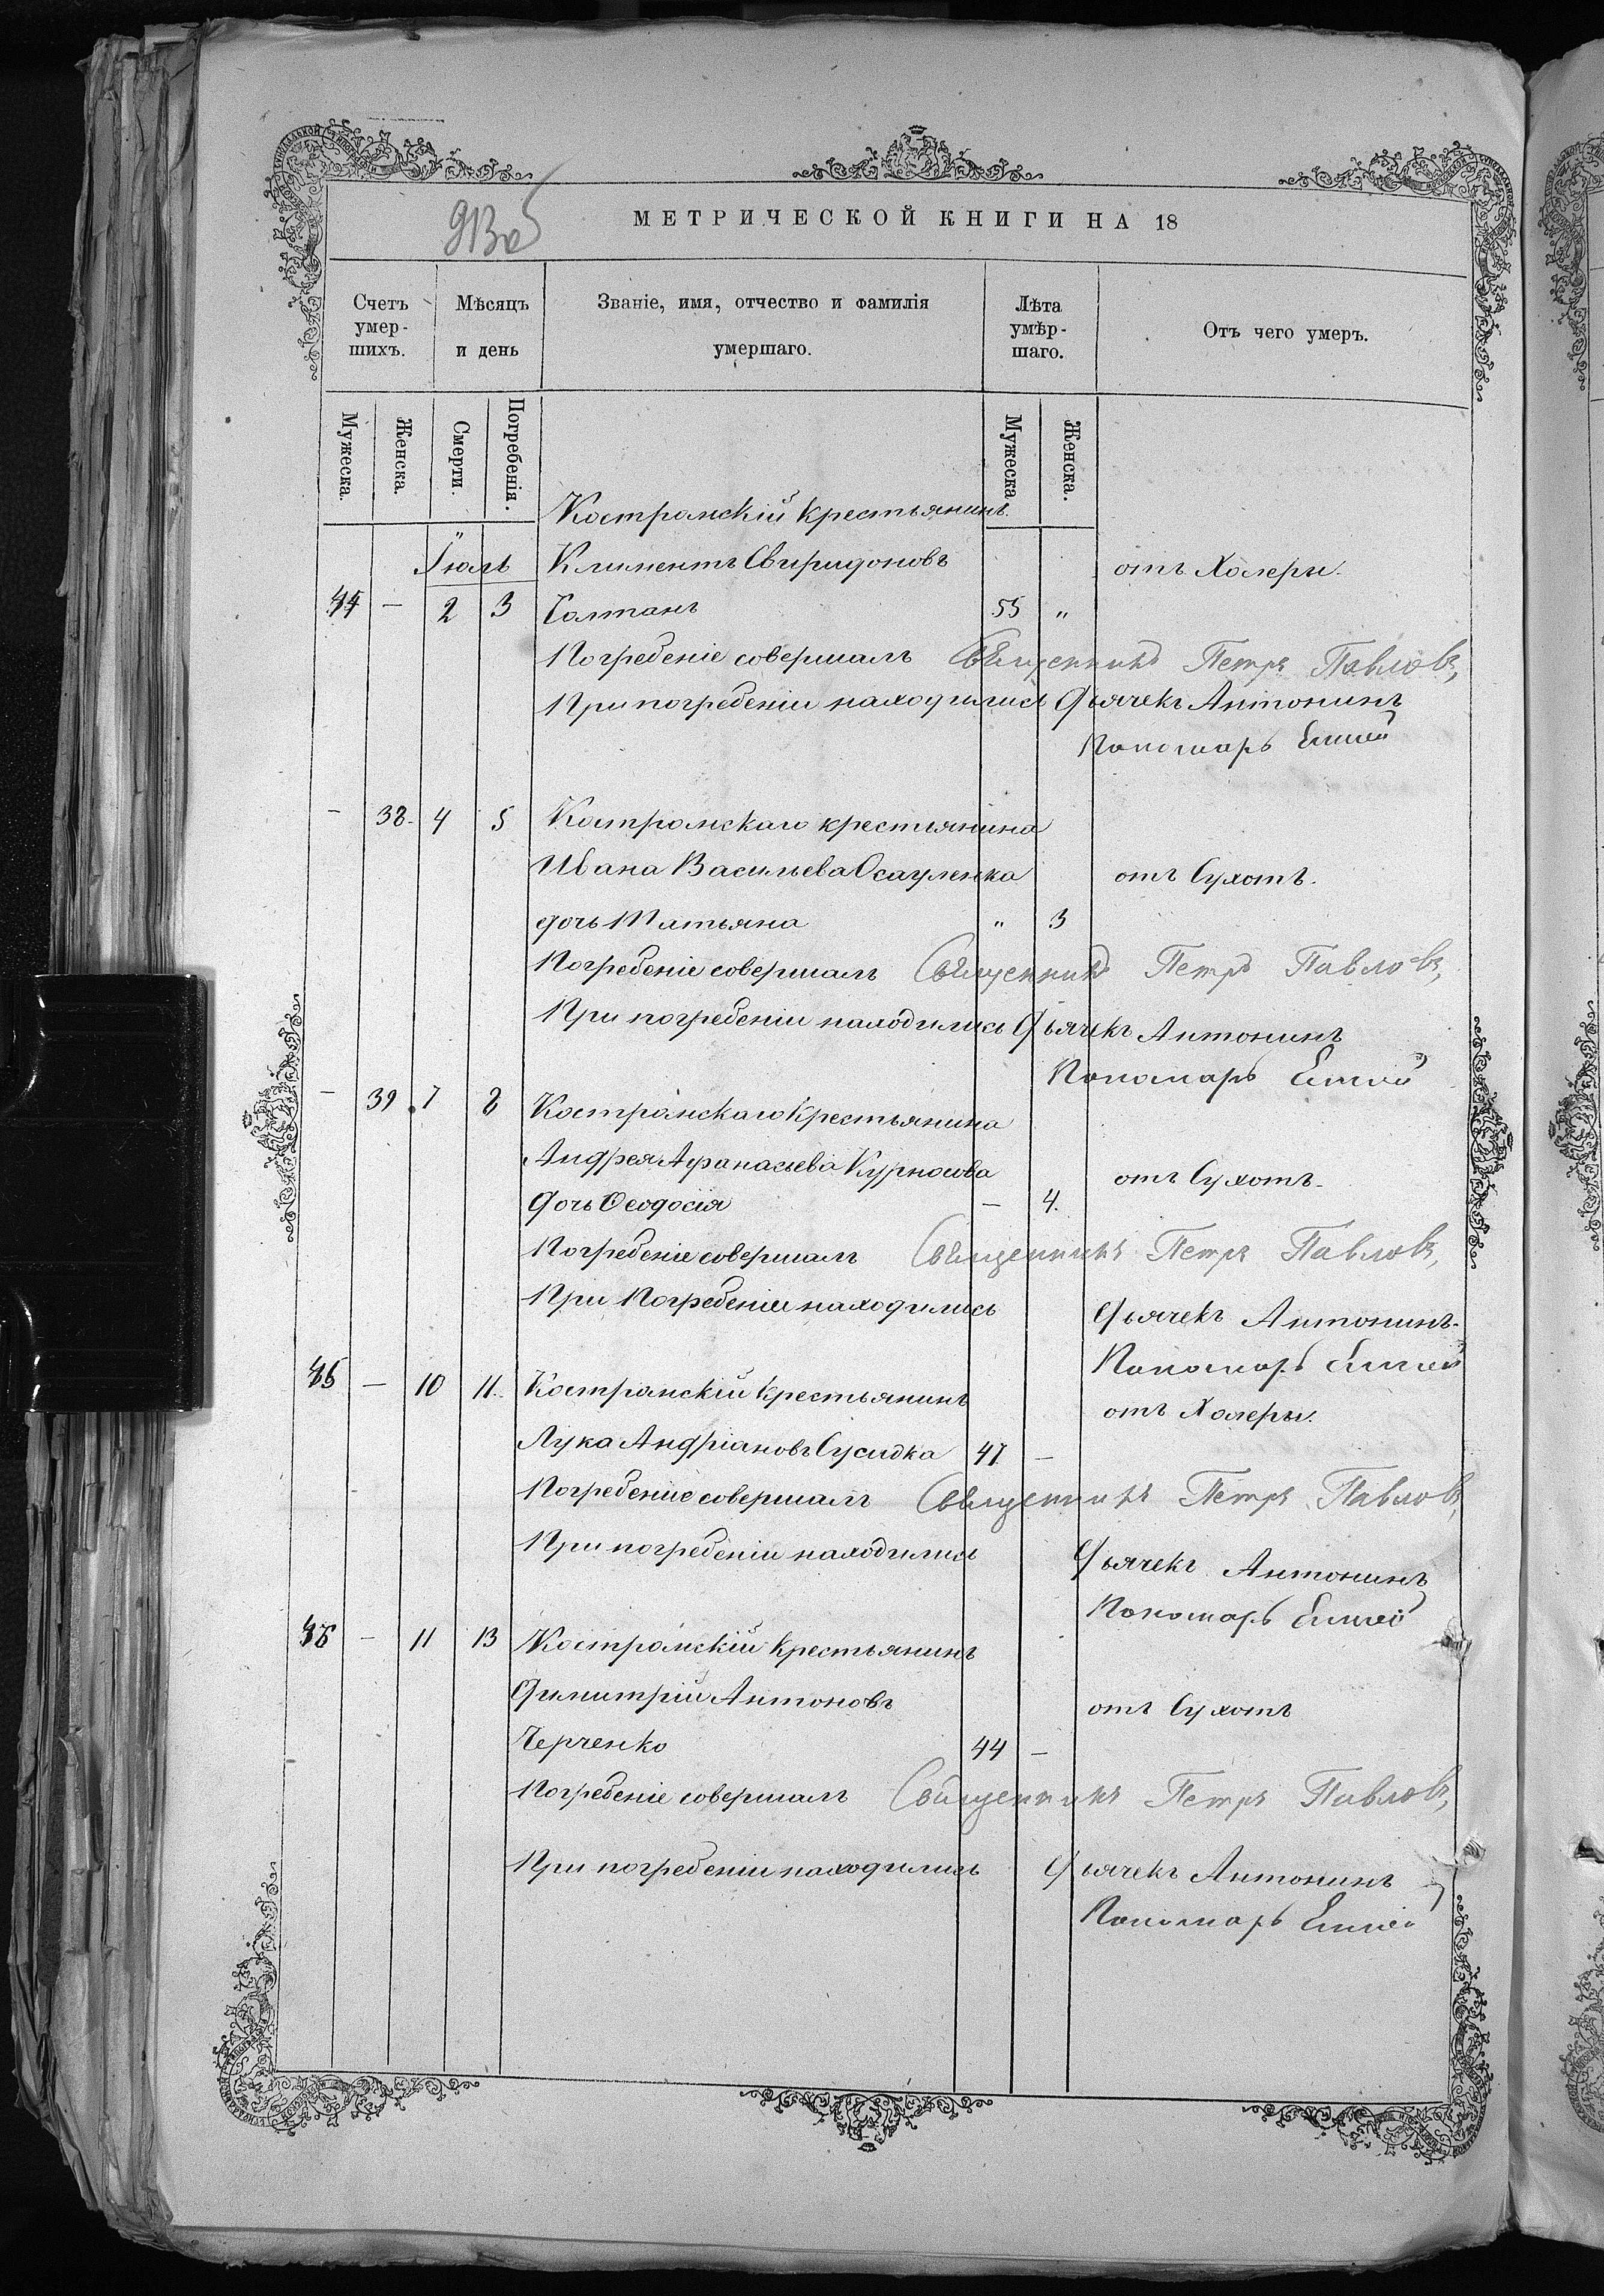 МЕТРИЧЕСКОЙ КНИГИ НА 18
Счетъ умер-шихъ.
Мѣсяцъ и день
Званіе, имя, отчество и фамилія умершаго.
Лѣта умѣр-шаго.
Отъ чего умеръ.
Мужеска. Женска. Смерти. Погребенія. Мужеска. Женска.
Костромскій крестьянинъ
Іюль Климентъ Свиридоновъ отъ Холеры.
— 2 3 Солтанъ 55 „
Погребеніе совершалъ Священникъ Петръ Павловъ,
При погребеніи находились Дьячекъ Антонинъ
Пономарь
— 38. 4 5 Костромскаго крестьянина
Ивана Васильева Осауленка отъ Сухотъ.
дочь Татьяна „ 3
Погребеніе совершалъ Священникъ Петръ Павловъ,
При погребеніи находились Дьячекъ Антонинъ
Пономарь
— 39 7 8 Костромскаго Крестьянина
Андрея Афанасьева Курносова отъ Сухотъ.
Дочь Феодосія — 4.
Погребеніе совершалъ Священникъ Петръ Павловъ,
При Погребеніи находились Дьячекъ Антонинъ.
Пономарь
— 10 11. Костромскій Крестьянинъ отъ Холеры.
Лука Андріановъ Сусидка 47 —
Погребеніе совершалъ Священникъ Петръ Павловъ,
При погребеніи находились Дьячекъ Антонинъ
Пономарь
— 11 13 Костромскій Крестьянинъ
Димитрій Антоновъ отъ Сухотъ
Черченко 44 —
Погребеніе совершалъ Священникъ Петръ Павловъ,
При погребеніи находились Дьячекъ Антонинъ
Пономарь